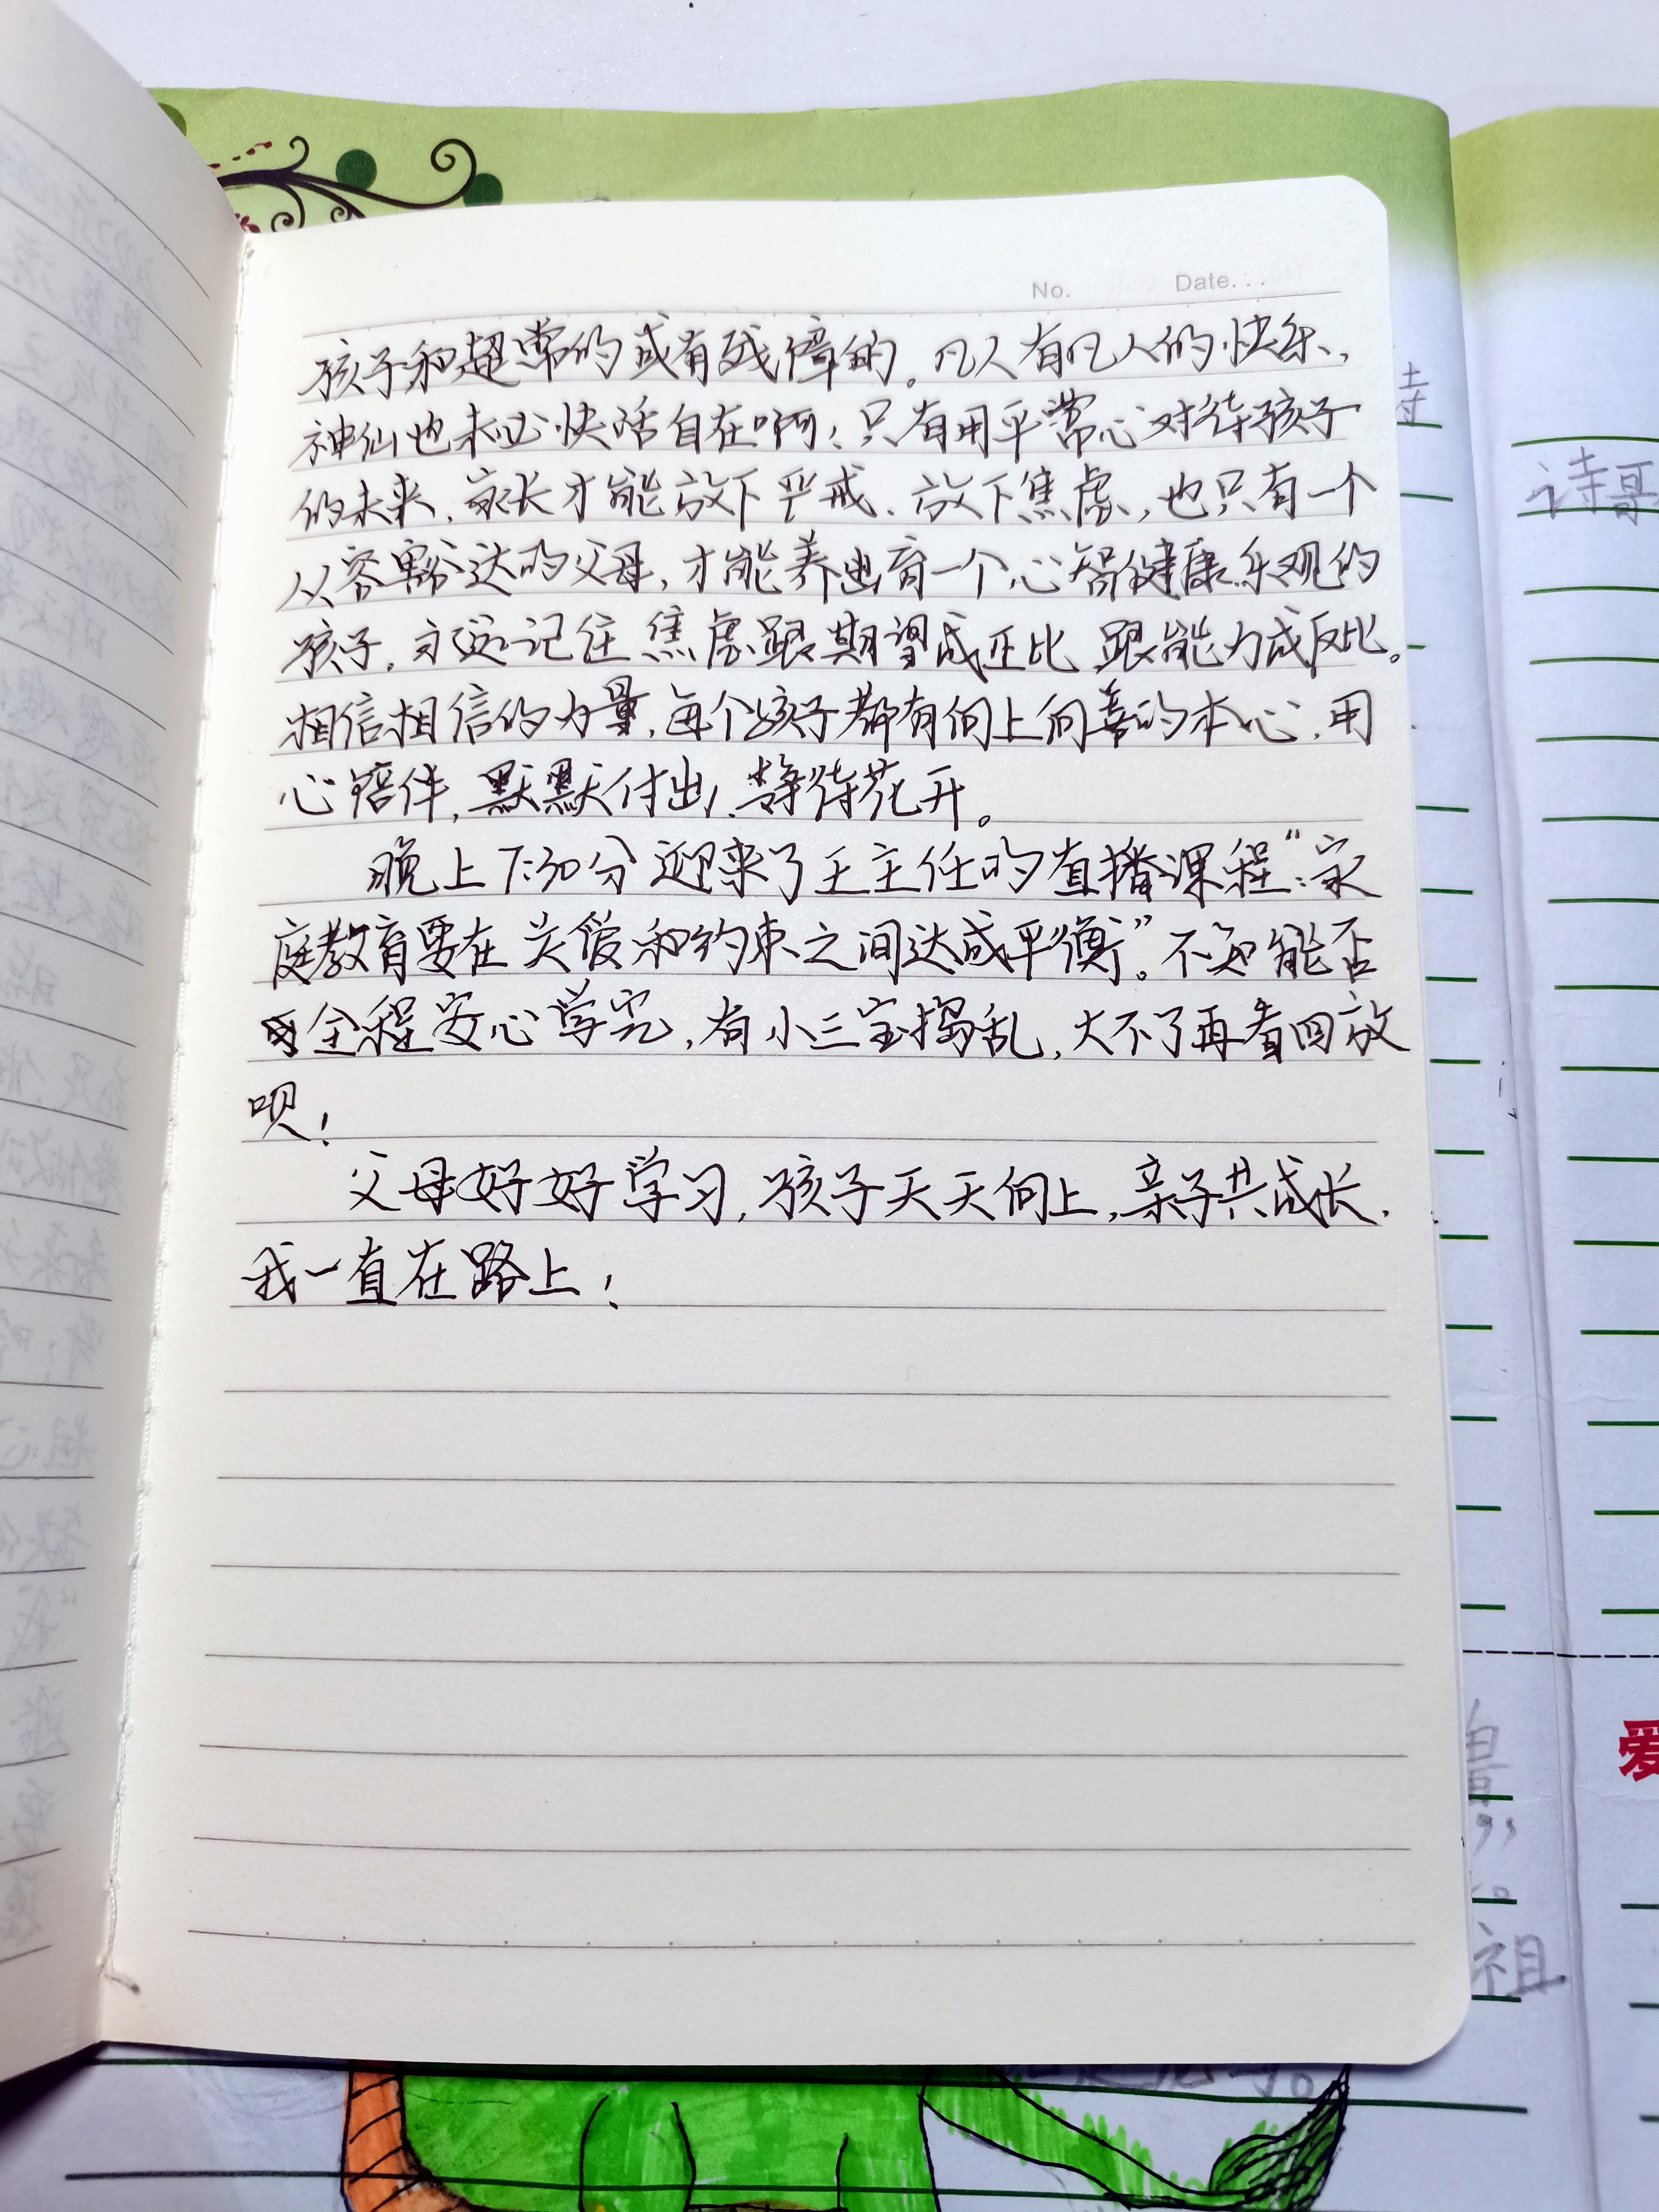 No. Date.
孩子和超常的或有残障的。凡人有凡人的快乐，
神仙也未必快活自在啊！只有用平常心对待孩子
的未来、家长才能放下严戒、放下焦虑，也只有一个
从容豁达的父母，才能养出育一个心智健康乐观的
孩子，永远记住焦虑跟期望成正比 跟能力成反比。
相信相信的力量，每个孩子都有向上向善的本心，用
心陪伴，默默付出，静待花开。
晚上7:30分迎来了王主任的直播课程“：家
庭教育要在关爱和约束之间达成平衡”。不知能否
全程安心学完，有小三宝捣乱，大不了再看回放
呗！
父母好好学习，孩子天天向上，亲子共成长，
我一直在路上！
诗
诗哥
爱
祖